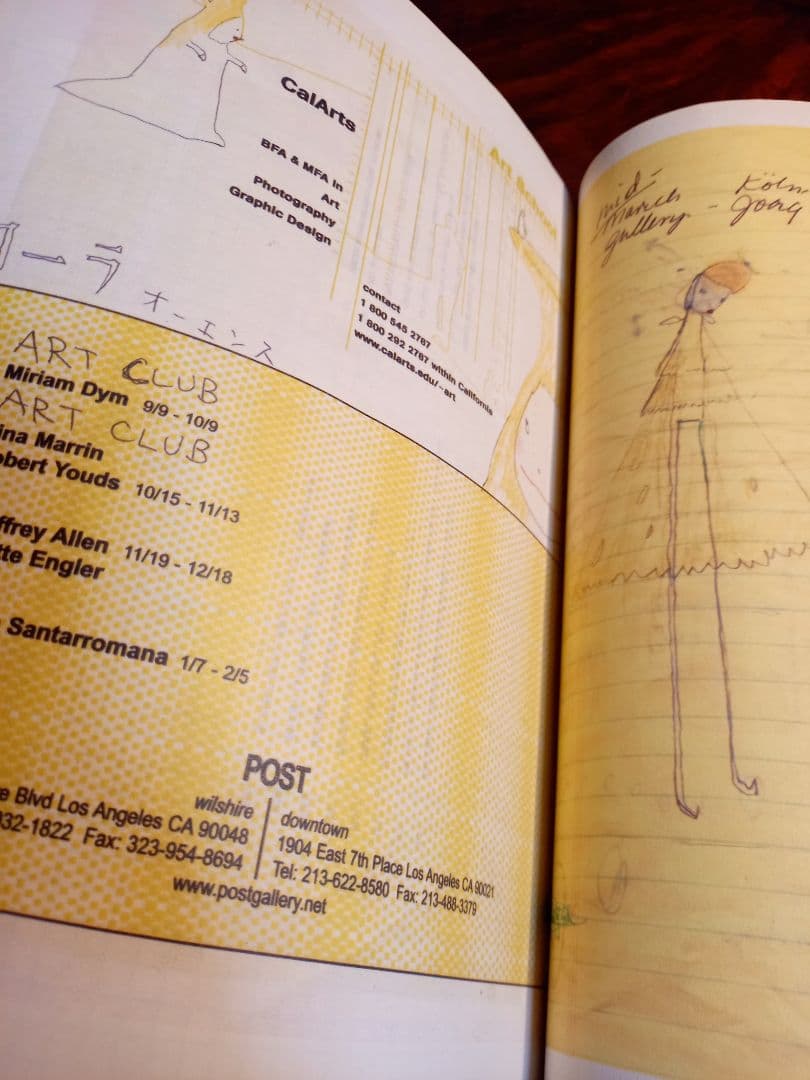 CalArts
BFA & MFA in
Art
Photography
Graphic Design
Art School
contact
1 800 545 2787
1 800 292 2787 within California
www.calarts.edu/~art
ーラ
オーエンス
ART CLUB
Miriam Dym 9/9 - 10/9
ART CLUB
Marrin
Youds 10/15 - 11/13
Allen 11/19 - 12/18
Engler
Santarromana 1/7 - 2/5
POST
wilshire
Blvd Los Angeles CA 90048
32-1822 Fax: 323-954-8694
downtown
1904 East 7th Place Los Angeles CA 90021
Tel: 213-622-8580 Fax: 213-488-3379
www.postgallery.net
mid-
March
gallery -
Köln
Joerg